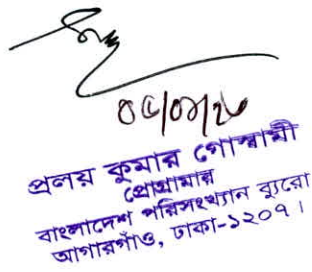 প্রলয় কুমার গোস্বামী
প্রোগ্রামার
বাংলাদেশ পরিসংখ্যান ব্যুরো
আগারগাঁও, ঢাকা-১২০৭।